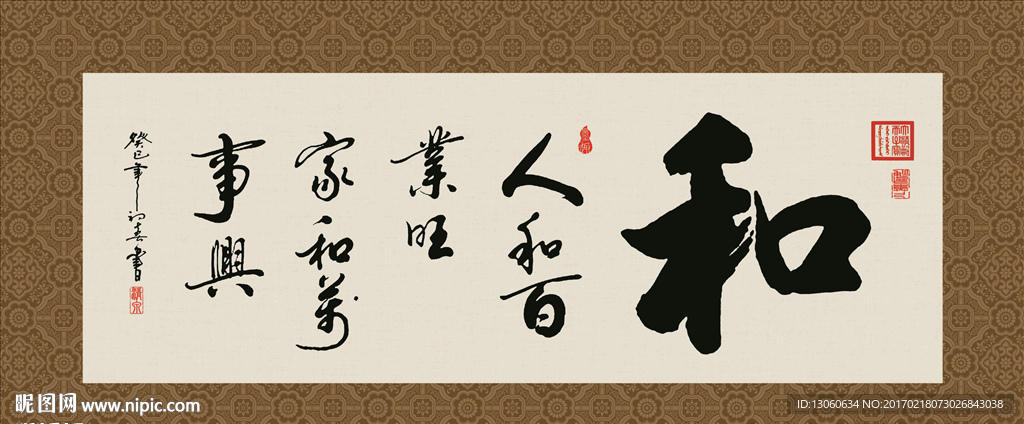 和
人和百
業旺
家和萬
事興
癸巳年初春書
昵图网 www.nipic.com
ID:13060634 NO:20170218073026843038